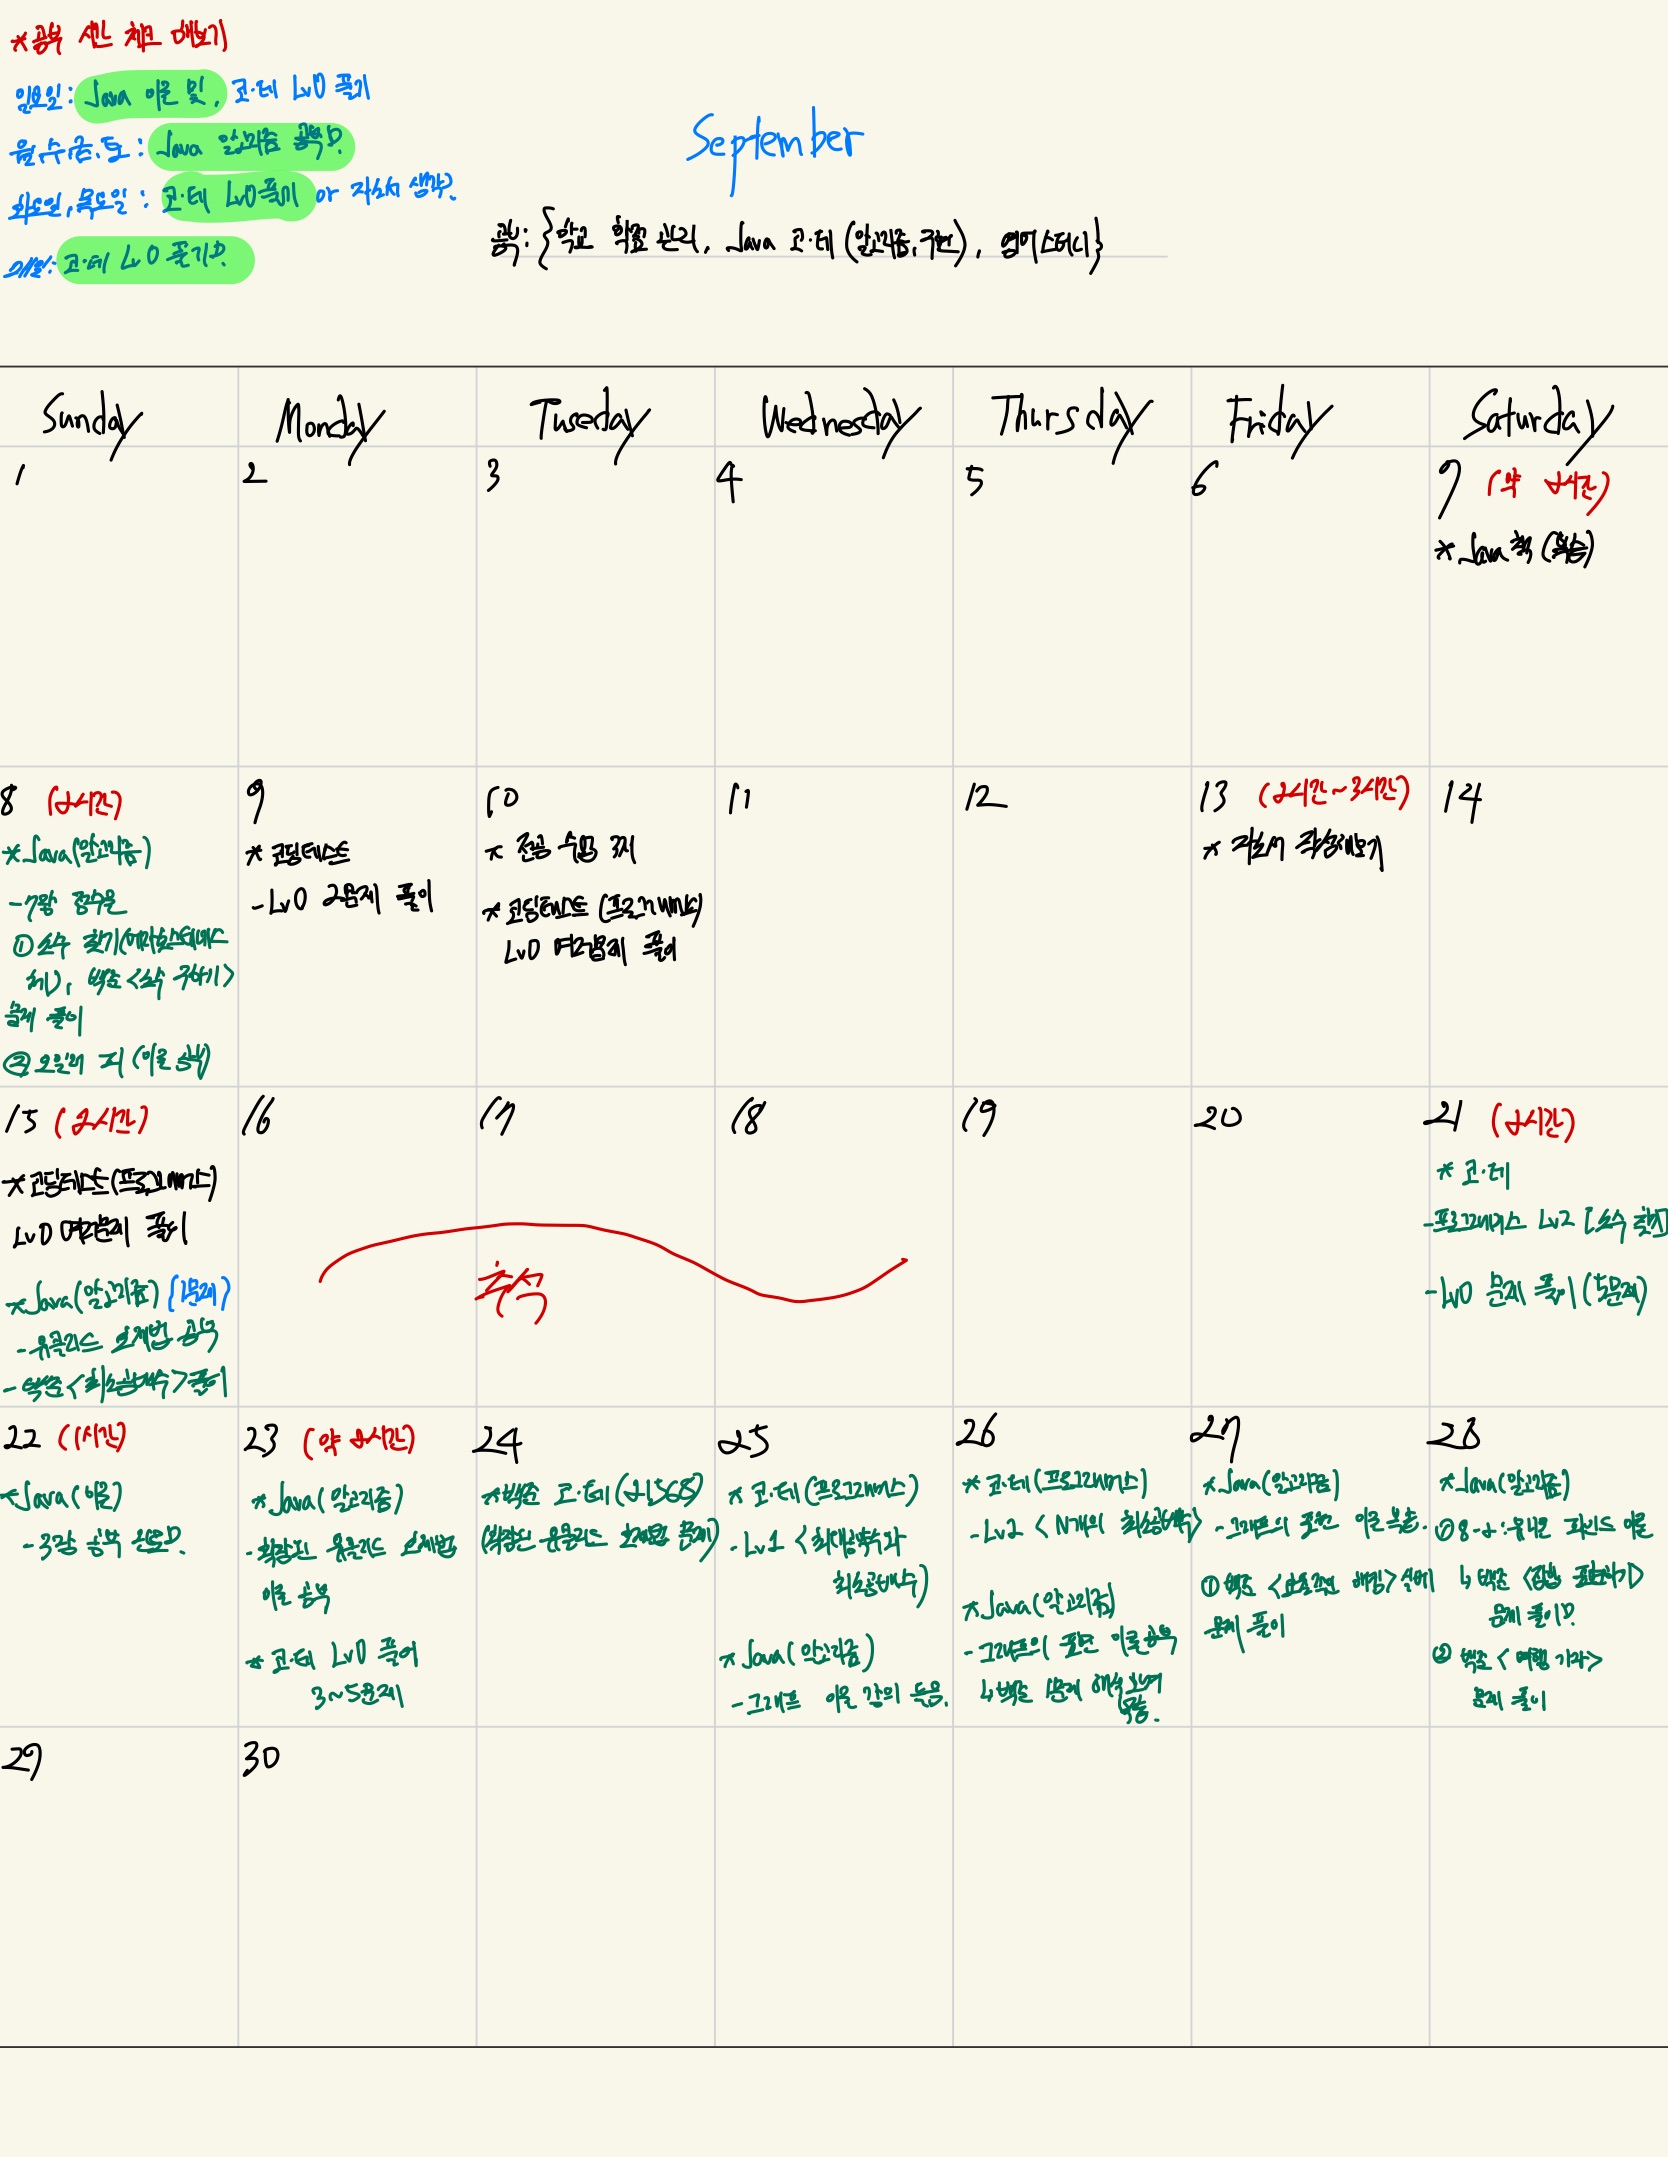 *공부 시간 체크 해보기
일요일: Java 이론 및, 코·테 Lv0 풀기
월,수,금,토: Java 알고리즘 공부!
화요일,목요일: 코·테 Lv0 풀이 or 자소서 생각?
매일: 코·테 Lv0 풀기!
September
공부: {학교 학점 관리, Java 코·테 (알고리즘, 구현), 영어스터디}
Sunday
Monday
Tuseday
Wednesday
Thursday
Friday
Saturday
1
2
3
4
5
6
7 (약 2시간)
*Java 책 (복습)
8 (2시간)
*Java(알고리즘)
-7장 정수론
①소수 찾기(에라토스테네스
체), 백준<소수 구하기>
문제 풀이
②오일러 피 (이론 공부)
9
*코딩테스트
-Lv0 2문제 풀이
10
* 전공 수업 과제
*코딩테스트 (프로그래머스)
Lv0 여러문제 풀이
11
12
13 (2시간~3시간)
* 자소서 작성해보기
14
15 (2시간)
*코딩테스트(프로그래머스)
Lv0 여러문제 풀이
*Java(알고리즘) {1문제}
-유클리드 호제법 공부
-백준<최소공배수>풀이
16
17
18
추석
19
20
21 (2시간)
* 코·테
-프로그래머스 Lv2 [소수 찾기]
-Lv0 문제 풀이 (5문제)
22 (1시간)
*Java(이론)
-3강 공부 완료!
23 (약 2시간)
*Java(알고리즘)
-확장된 유클리드 호제법
이론 공부
* 코·테 Lv0 풀이
3~5문제
24
*백준 코·테(21568)
(확장된 유클리드 호제법 문제)
25
* 코·테(프로그래머스)
-Lv1 <최대공약수와
최소공배수)
*Java(알고리즘)
-그래프 이론 강의 들음.
26
* 코·테(프로그래머스)
-Lv2 < N개의 최소공배수>
*Java(알고리즘)
-그래프의 표현 이론공부
↳백준 문제 해석 보며
복습.
27
*Java(알고리즘)
-그래프의 표현 이론 복습.
①백준 <효율적인 해킹>실버
문제 풀이
28
*Java(알고리즘)
①8-2:유니온 파인드 이론
↳백준 <집합 표현하기>
문제 풀이!
②백준<여행 가자>
문제 풀이
29
30